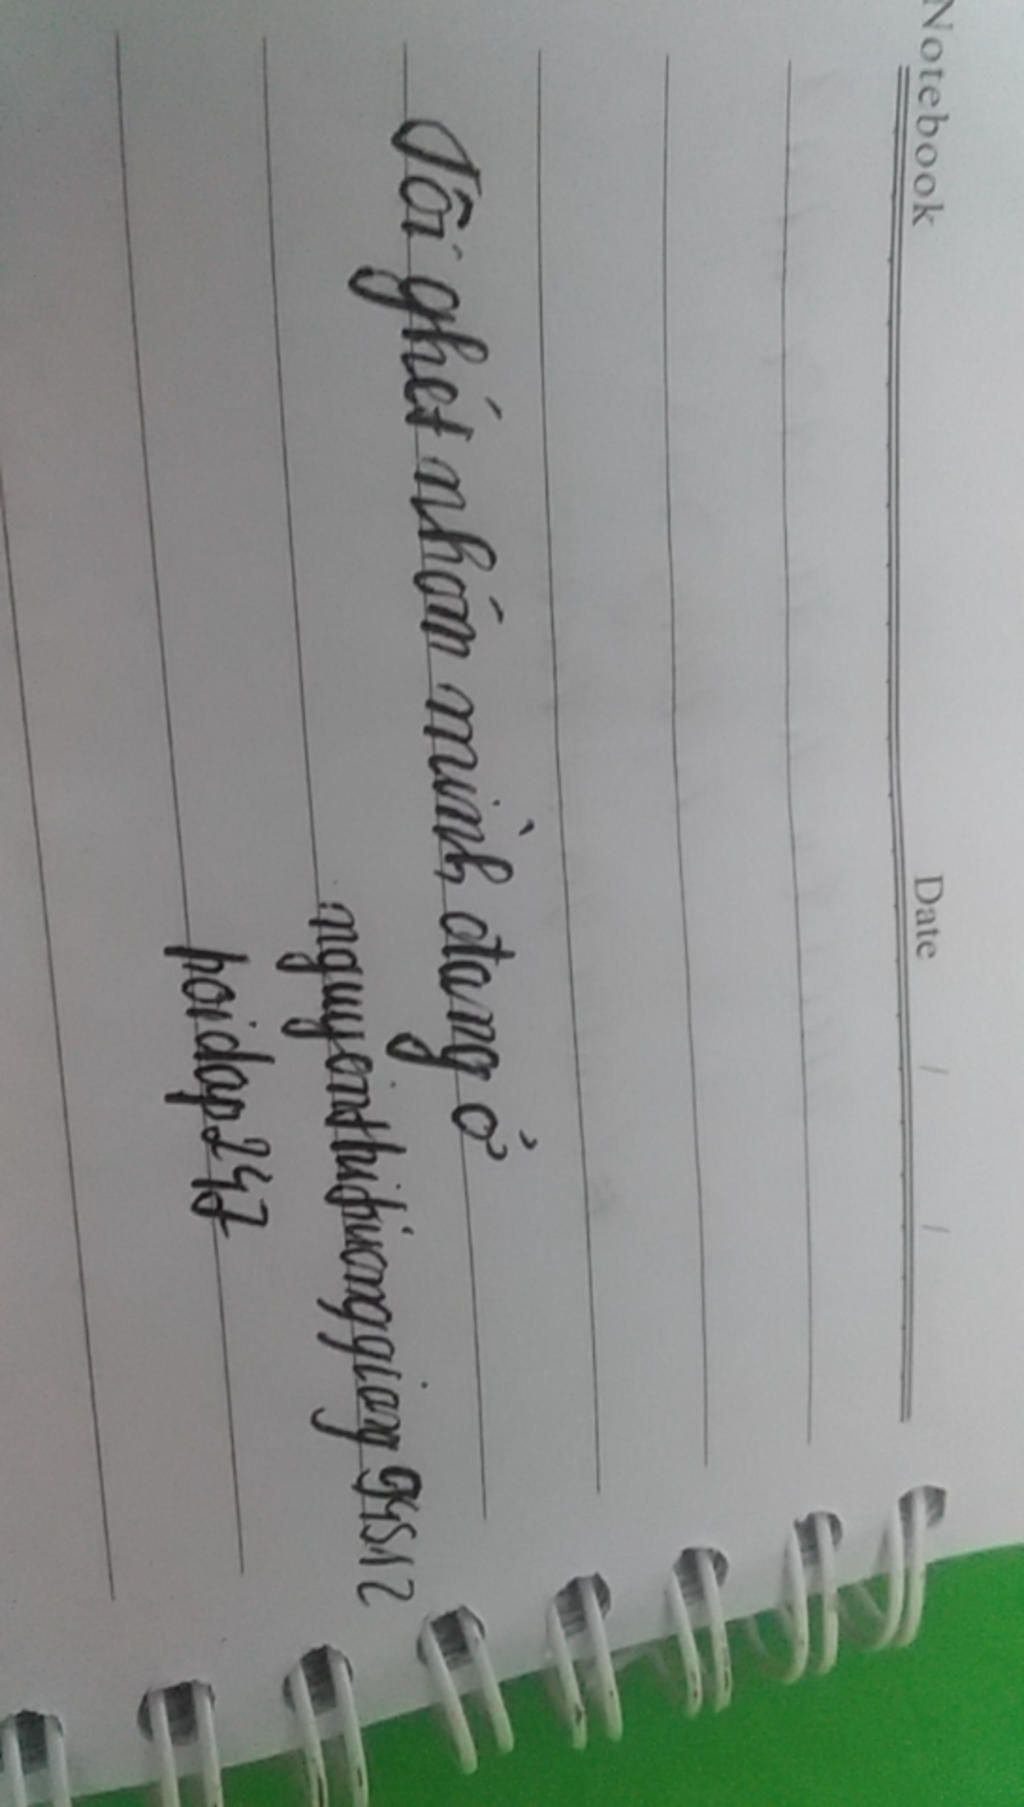 Notebook Date / /
Tôi ghét nhóm mình đang ở
:nguyenthihuonggiang94512
hoidap247